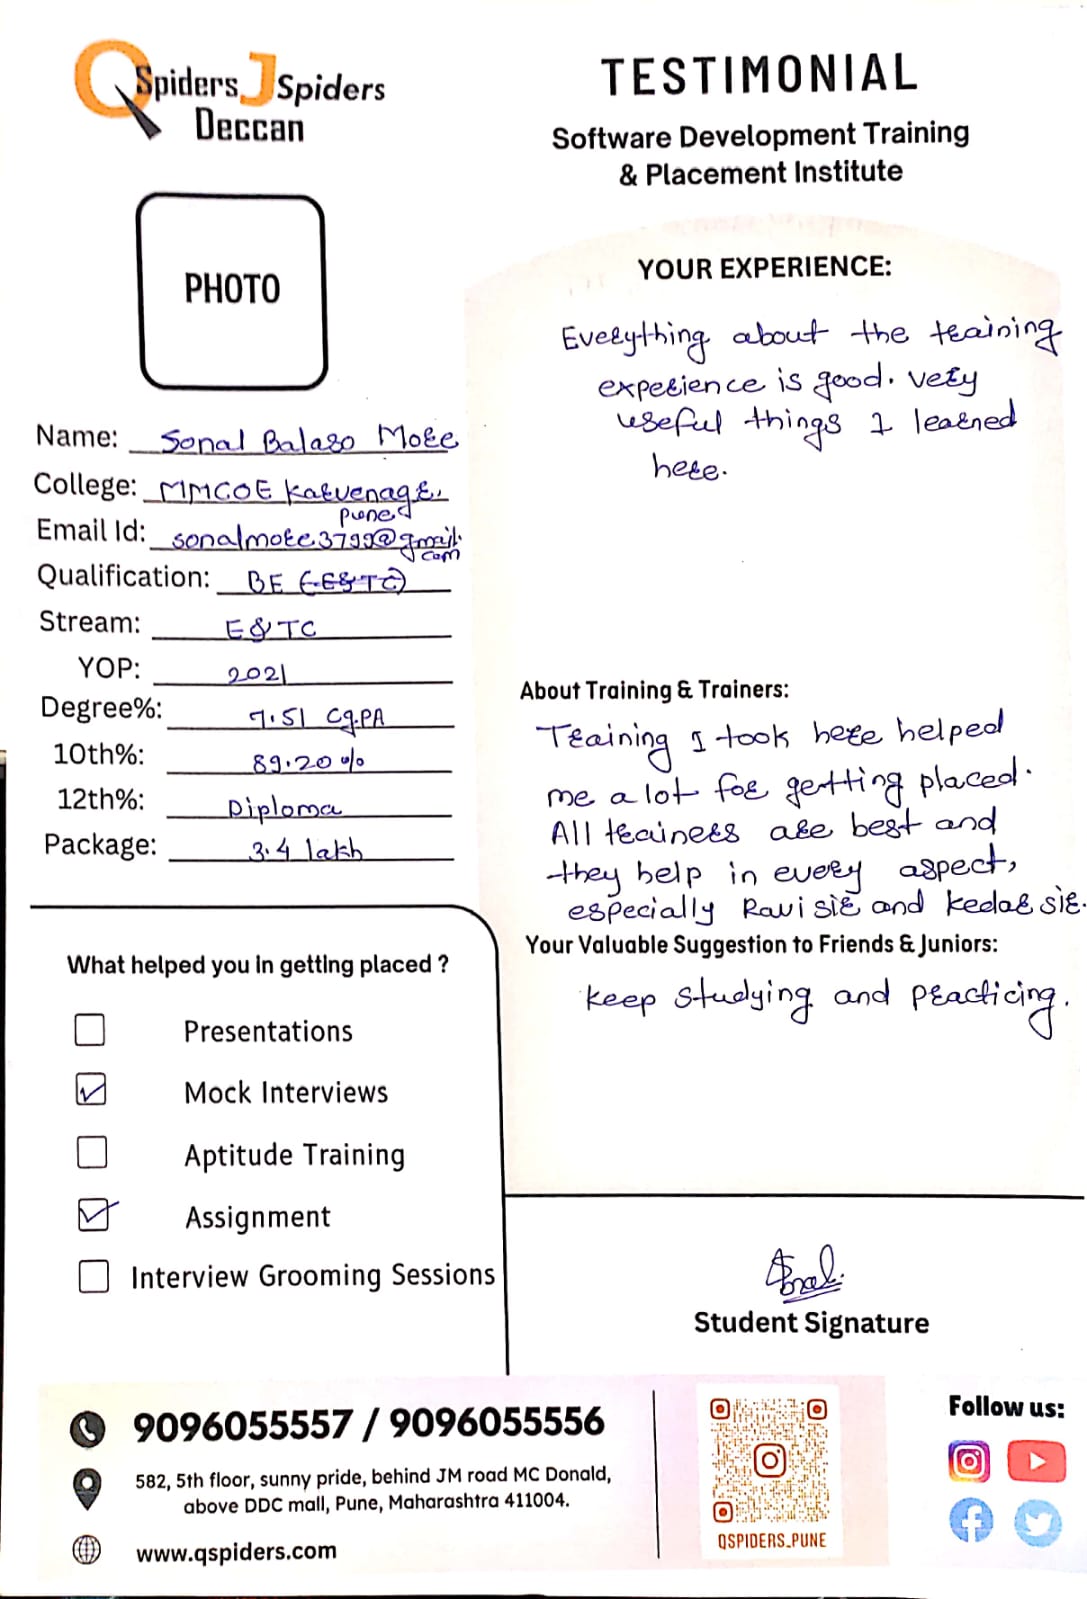 QSpiders JSpiders
Deccan
TESTIMONIAL
Software Development Training
& Placement Institute
PHOTO
Name: Sonal Balaso More
College: MMCOE Karvenagar,
Pune
Email Id: sonalmore3799@gmail.
com
Qualification: BE (E&TC)
Stream: E&TC
YOP: 2021
Degree%: 7.51 CGPA
10th%: 89.20%
12th%: Diploma
Package: 3.4 lakh
What helped you in getting placed ?
Presentations
Mock Interviews
Aptitude Training
Assignment
Interview Grooming Sessions
YOUR EXPERIENCE:
Everything about the training
experience is good. very
useful things I learned
here.
About Training & Trainers:
Training I took here helped
me a lot for getting placed.
All trainers are best and
they help in every aspect,
especially Ravi sir and Kedar sir.
Your Valuable Suggestion to Friends & Juniors:
Keep studying and practicing.
Sonal
Student Signature
9096055557 / 9096055556
582, 5th floor, sunny pride, behind JM road MC Donald,
above DDC mall, Pune, Maharashtra 411004.
www.qspiders.com
QSPIDERS_PUNE
Follow us: